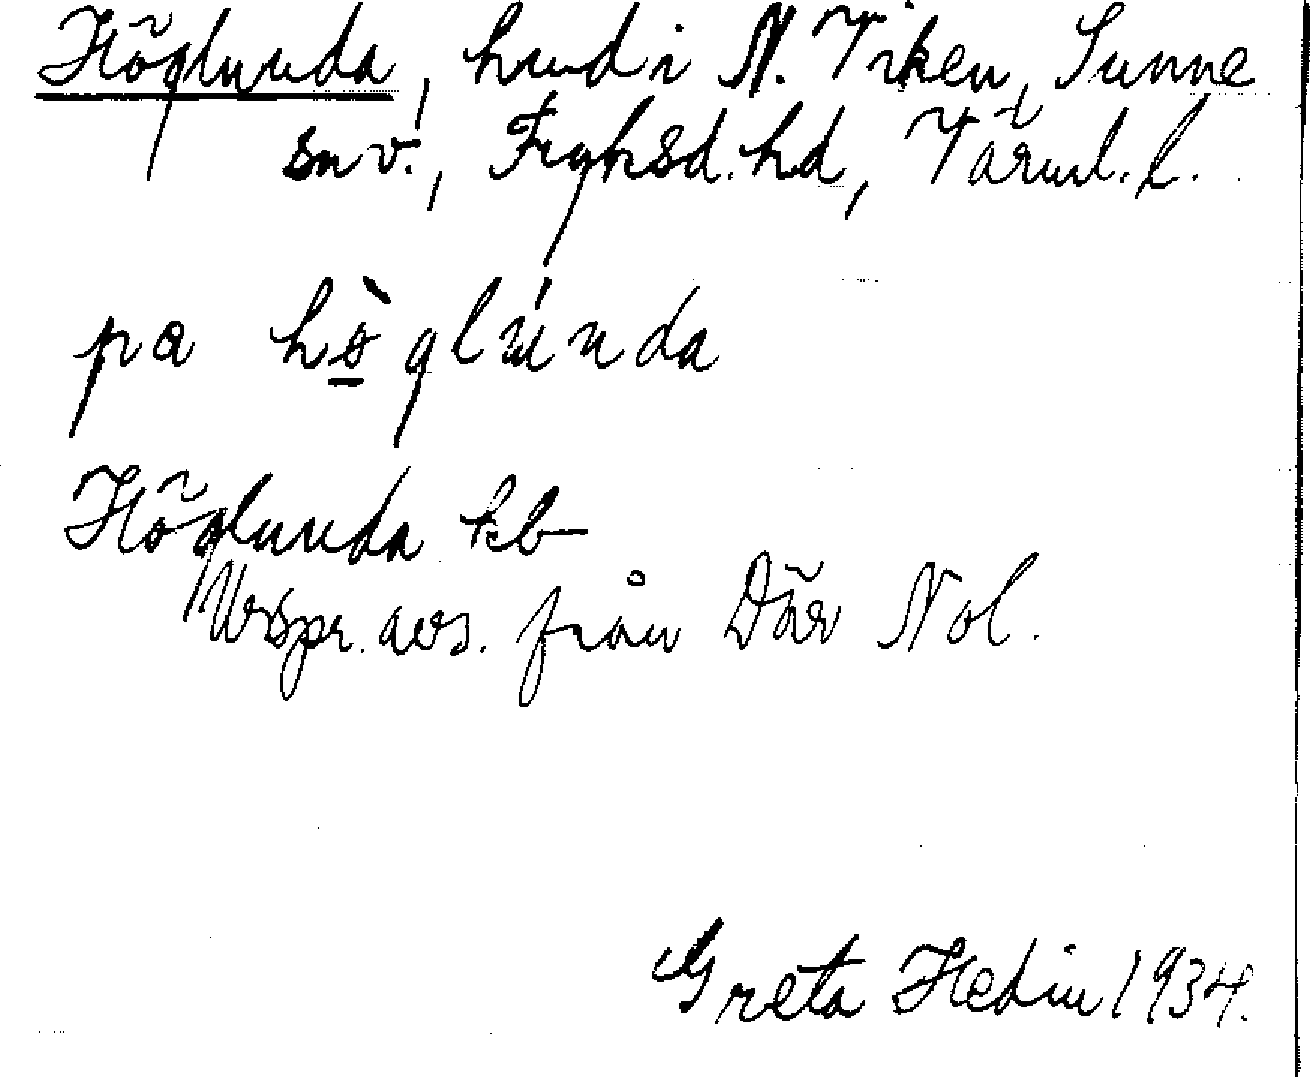 Höglunda, hmd i N. Viken, Sunne
sn v., Fryksd. hd, Värml. l.
pa hò̱glúnda
Höglunda kb
Urspr. avs. från Där Nol.
Greta Hedin 1934.